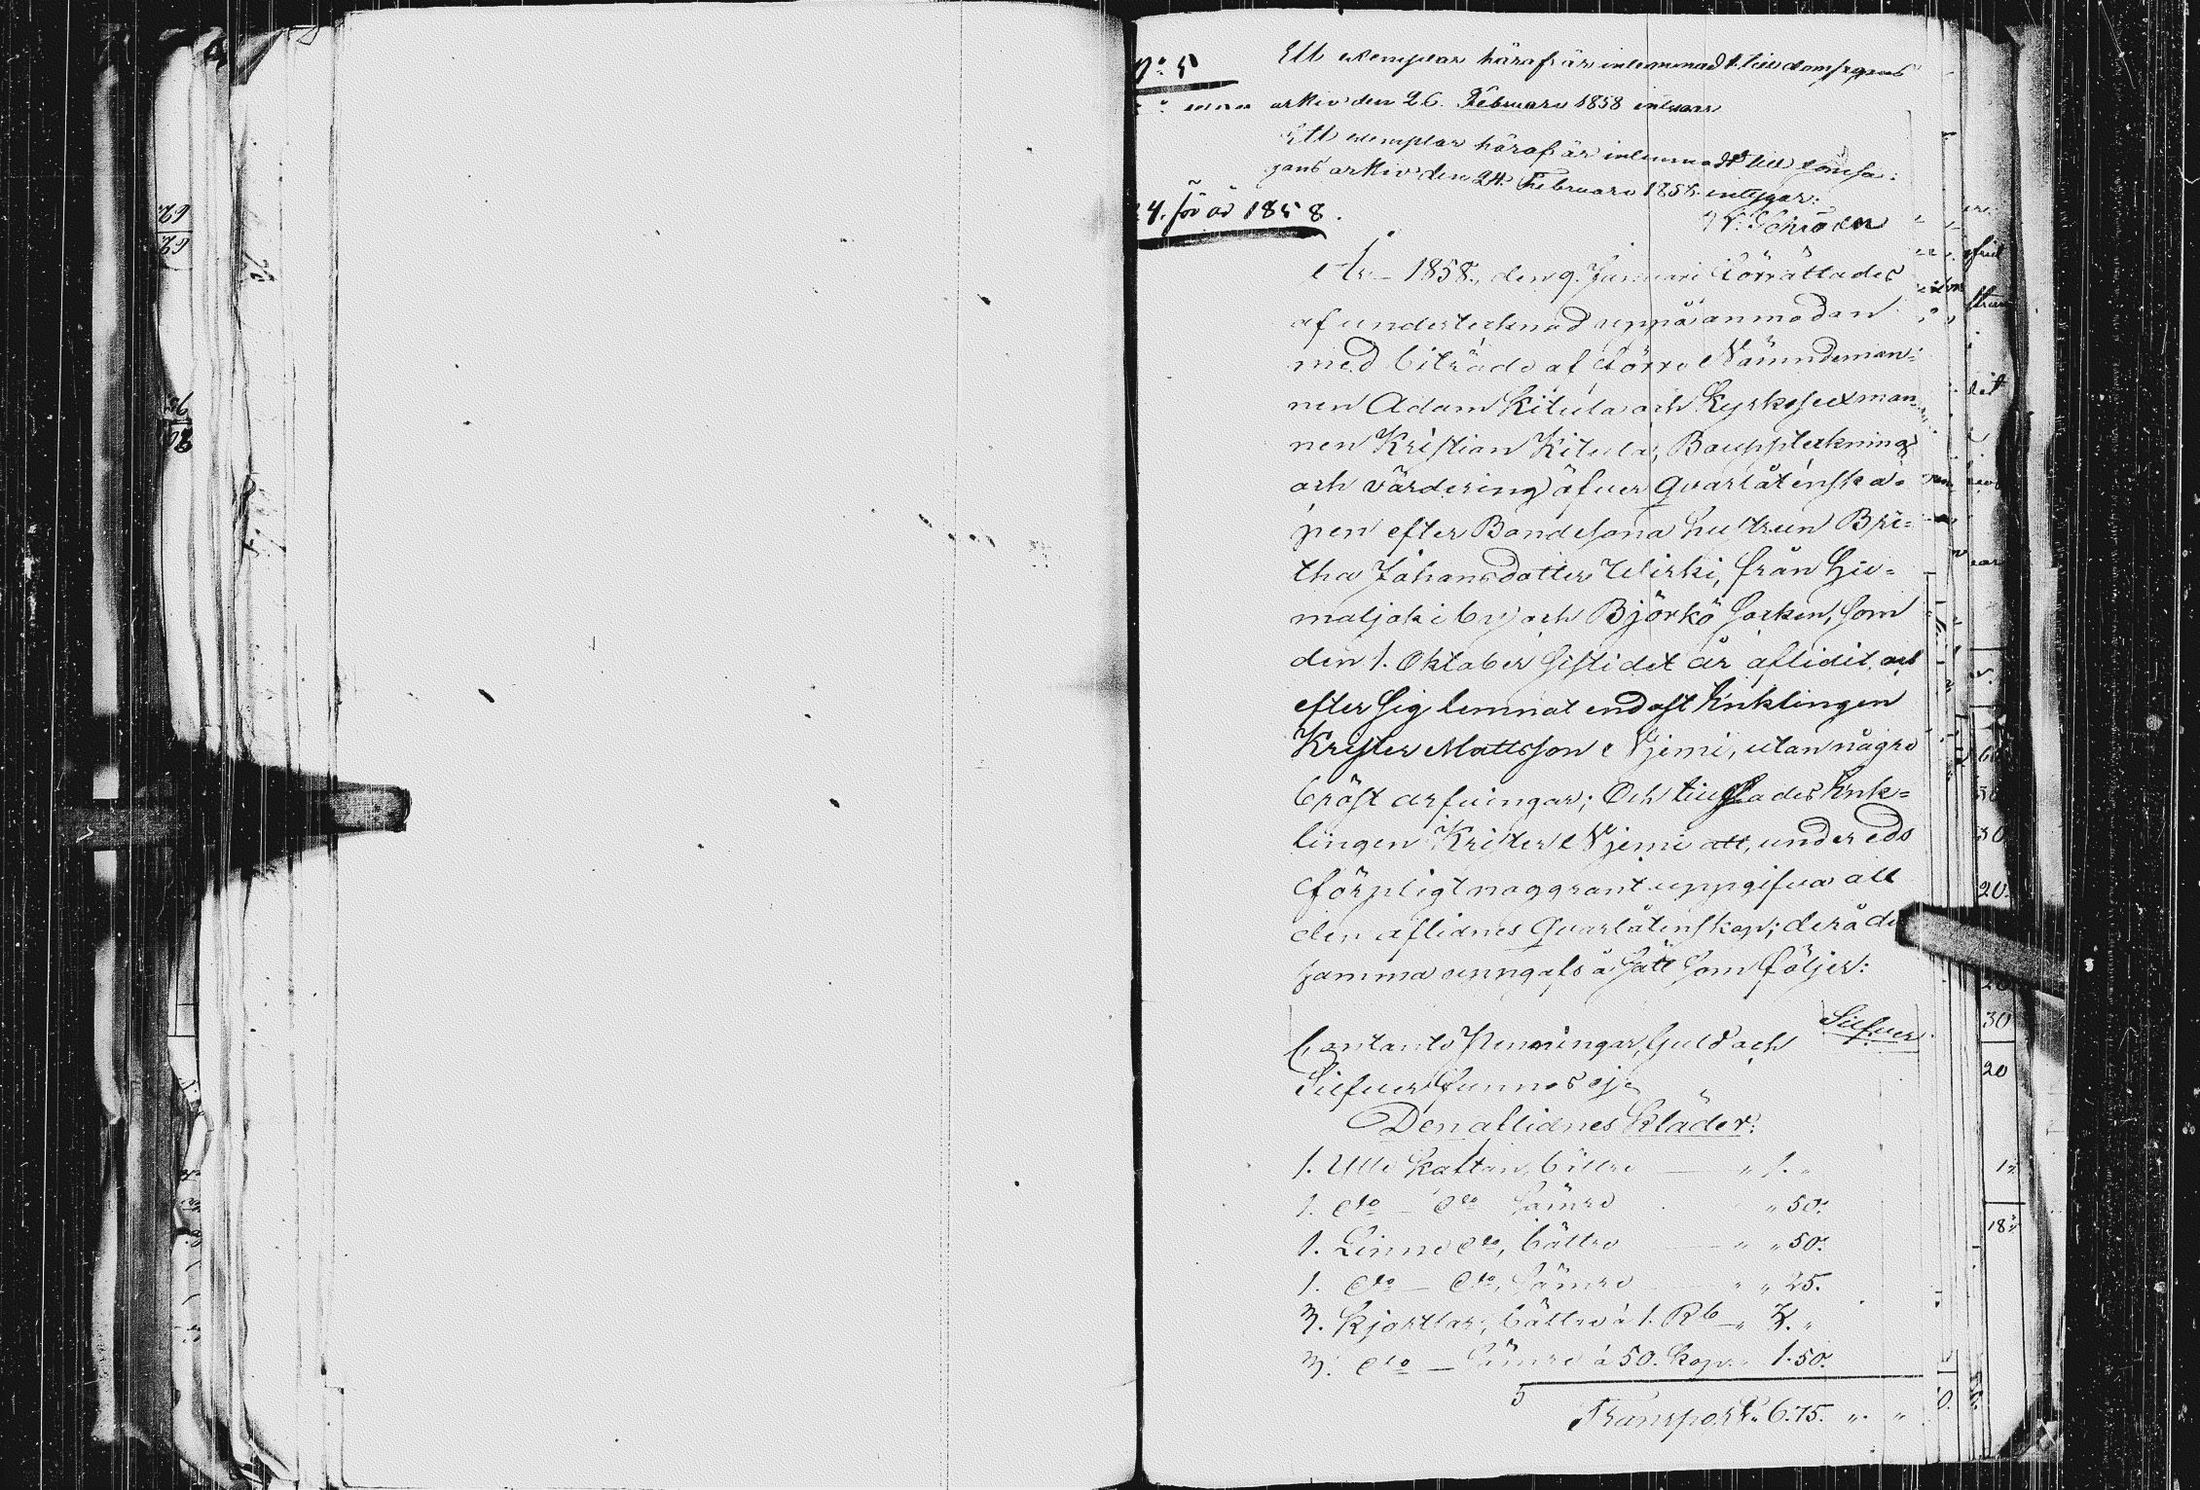 N:o 5
Ett exemplar häraf är inlemnadt till domhagans
arkiv den 26. Februari 1858 intygar
Ett exemplar häraf är inlemnadt till domsa:
gans arkiv den 24. Februari 1858. intygar:
24. för år 1858.
Schröder
År 1858, den 9. Januari förrättades
af undertecknad uppå anmodan
med biträde af förre Nämndeman:
nen Adam Kitula och Kyrkosexman:
nen Kristian Kitula, Bouppteckning
och värdering öfver qvarlåtenska:
pen efter Bondesona hustrun Bri=
tha Johansdotter Wirki, från Hu=
maljoki by och Björkö socken, som
den 1. Oktober sistlidet år aflidit och
efter sig lemnat endast Enklingen
Krister Mattsson Njemi, utan någre
bröst arfvingar; Och tillsades Enk=
lingen Krister Njemi att, under eds
förpligt noggrant uppgifva all
den aflidnes qvarlåtenskap; derå den
samma uppgafs å sätt som följer:
Silfver
Contante Penningar, Guld och
Silfver funnos ej
Den aflidnes Kläder:
1. Ulle Kaftan, bättre — " 1. "
1. d:o — d:o sämre " 50.
1. Linne d:o, bättre — " " 50.
1. d:o — d:o, sämre — " " 25.
3. Kjortlar, bättre à 1. Rb " 3. "
3. d:o — sämre à 50. Kop. " 1.50.
Transport 6.75. " "